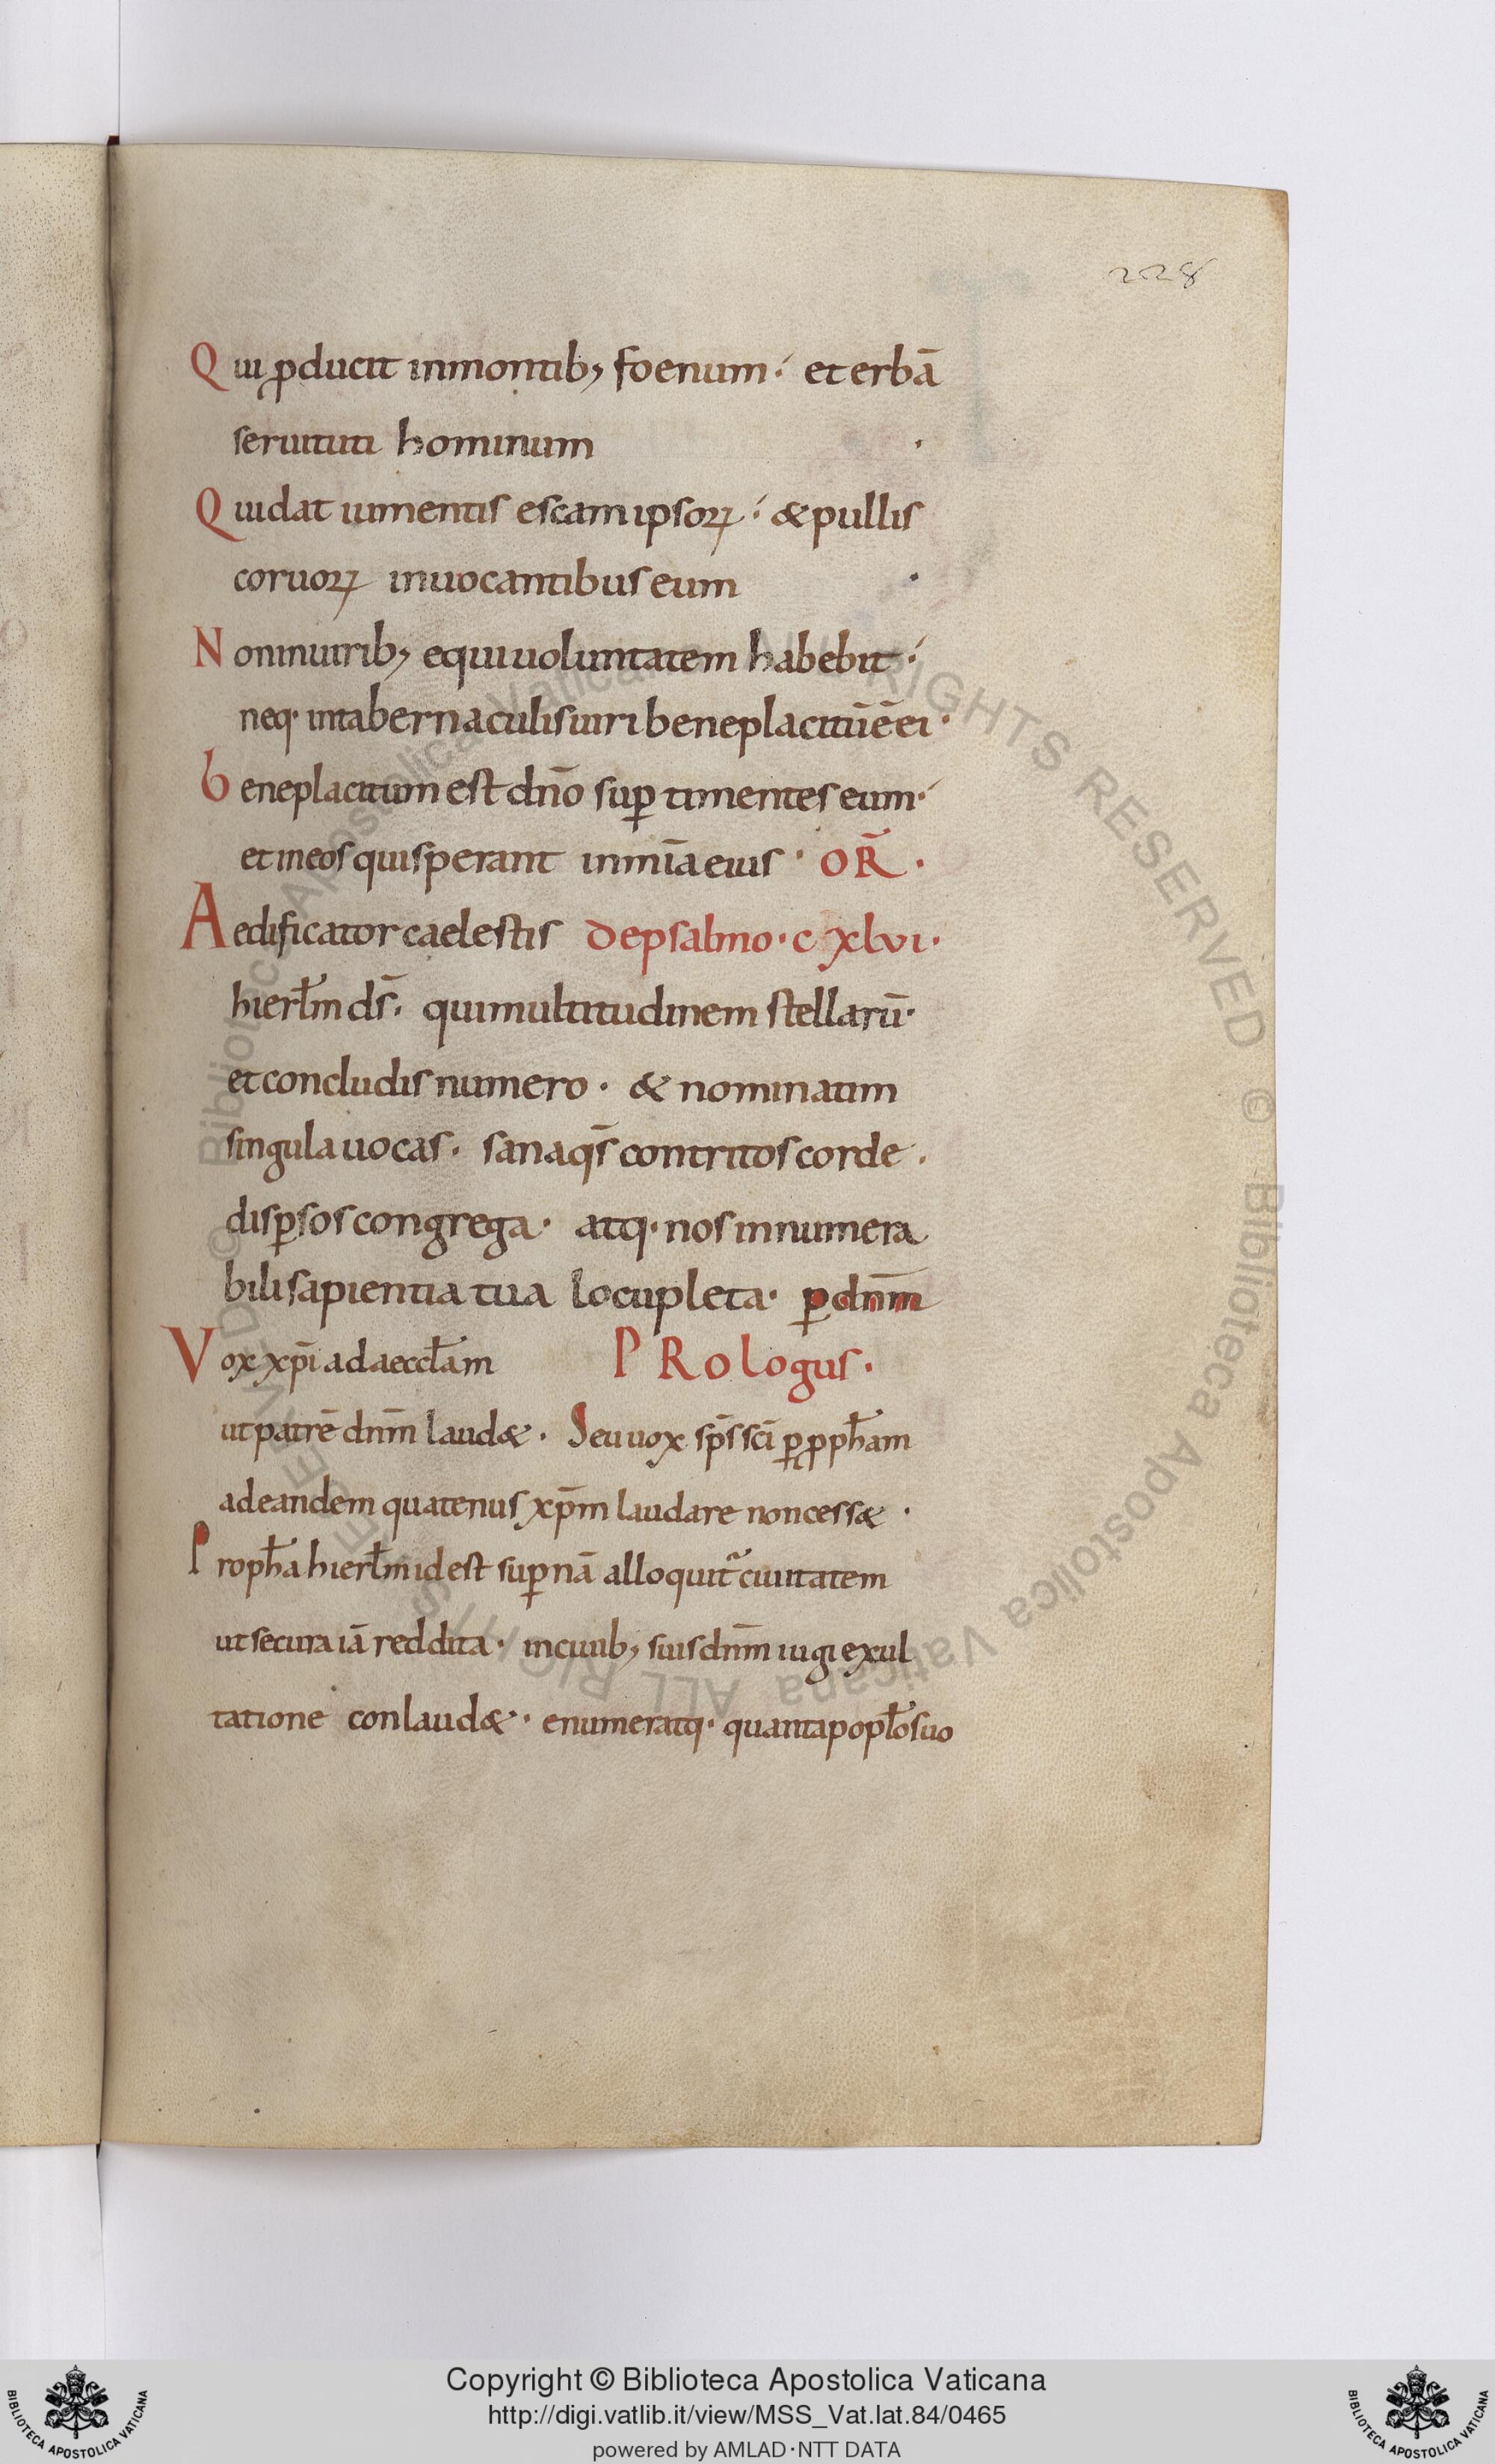 228
Qui ꝓducit inmontib; foenum·́ et erbā
seruituti hominum ·
Qui dat iumentis escam ipsoꝝ·́ & pullis
coruoꝝ inuocantibus eum ·
Non inuirib; equi uoluntatem habebit·́
neq· intabernaculis uiri beneplacitū ē ei·
beneplacitum est dn̄o suꝑ timentes eum·́
et ineos qui sperant in mīa eius · OR̄ ·
Aedificator caelestis De psalmo · c xlvi ·
hierłm dс̄· qui multitudinem stellarū·
et concludis numero · & nominatim
singula uocas · sana qs̄ contritos corde ·
disꝑsos congrega · atq· nos innumera
bili sapientia tua locupleta · ꝑ dn̄m
Vox xp̄i ad aeccłam PRologus ·
ut patrē dn̄m laud& · Seu uox sp̄s sc̄i ꝑ ꝓpħam
ad eandem quatenus xp̄m laudare non cess& ·
Propħa hierłm id est suꝑnā alloquit᷑ ciuitatem
ut secura iā reddita · in ciuib; suis dn̄m iugi exul
tatione conlaud& · enumeratq· quanta popło suo
© Biblioteca Apostolica Vaticana ALL RIGHTS RESERVED © Biblioteca Apostolica Vaticana ALL RIGHTS RESERVED
Copyright © Biblioteca Apostolica Vaticana
http://digi.vatlib.it/view/MSS_Vat.lat.84/0465
powered by AMLAD·NTT DATA
BIBLIOTECA APOSTOLICA VATICANA
BIBLIOTECA APOSTOLICA VATICANA